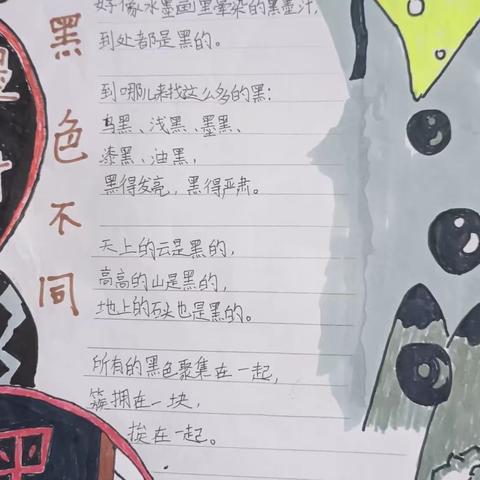 黑色不同
好像水墨画里晕染的黑墨汁,
到处都是黑的。
到哪儿来找这么多的黑:
乌黑、浅黑、墨黑、
漆黑、油黑,
黑得发亮,黑得严肃。
天上的云是黑的,
高高的山是黑的,
地上的石头也是黑的。
所有的黑色聚集在一起,
簇拥在一块,
挨在一起。
墨